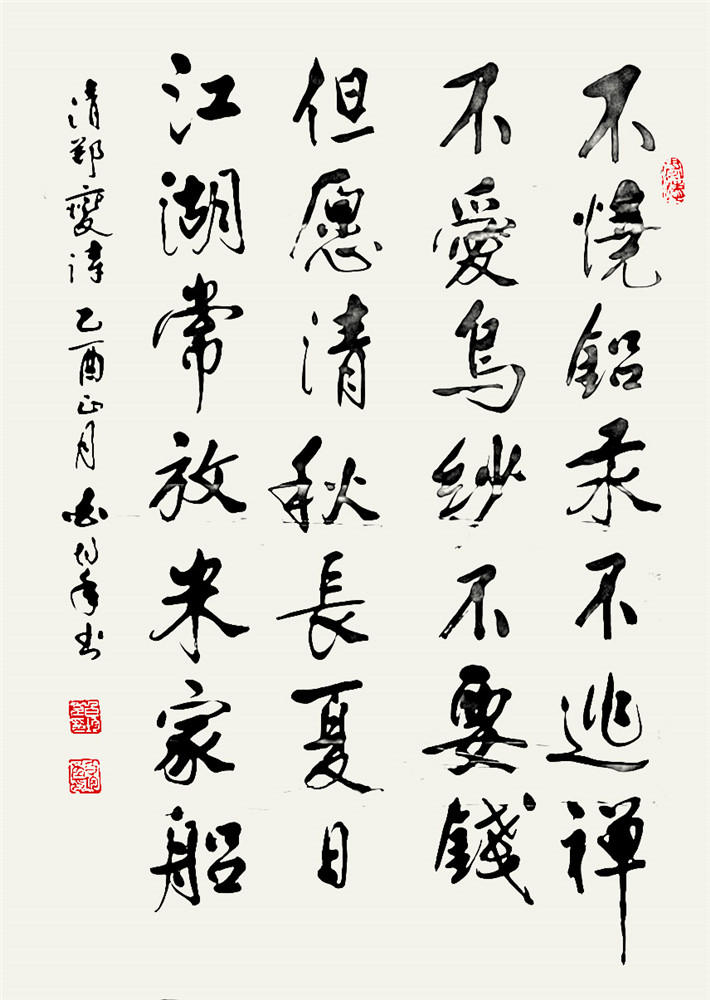 不燒鉛汞不逃禪
不愛烏紗不要錢
但愿清秋長夏日
江湖常放米家船
清鄭燮詩乙酉正月書